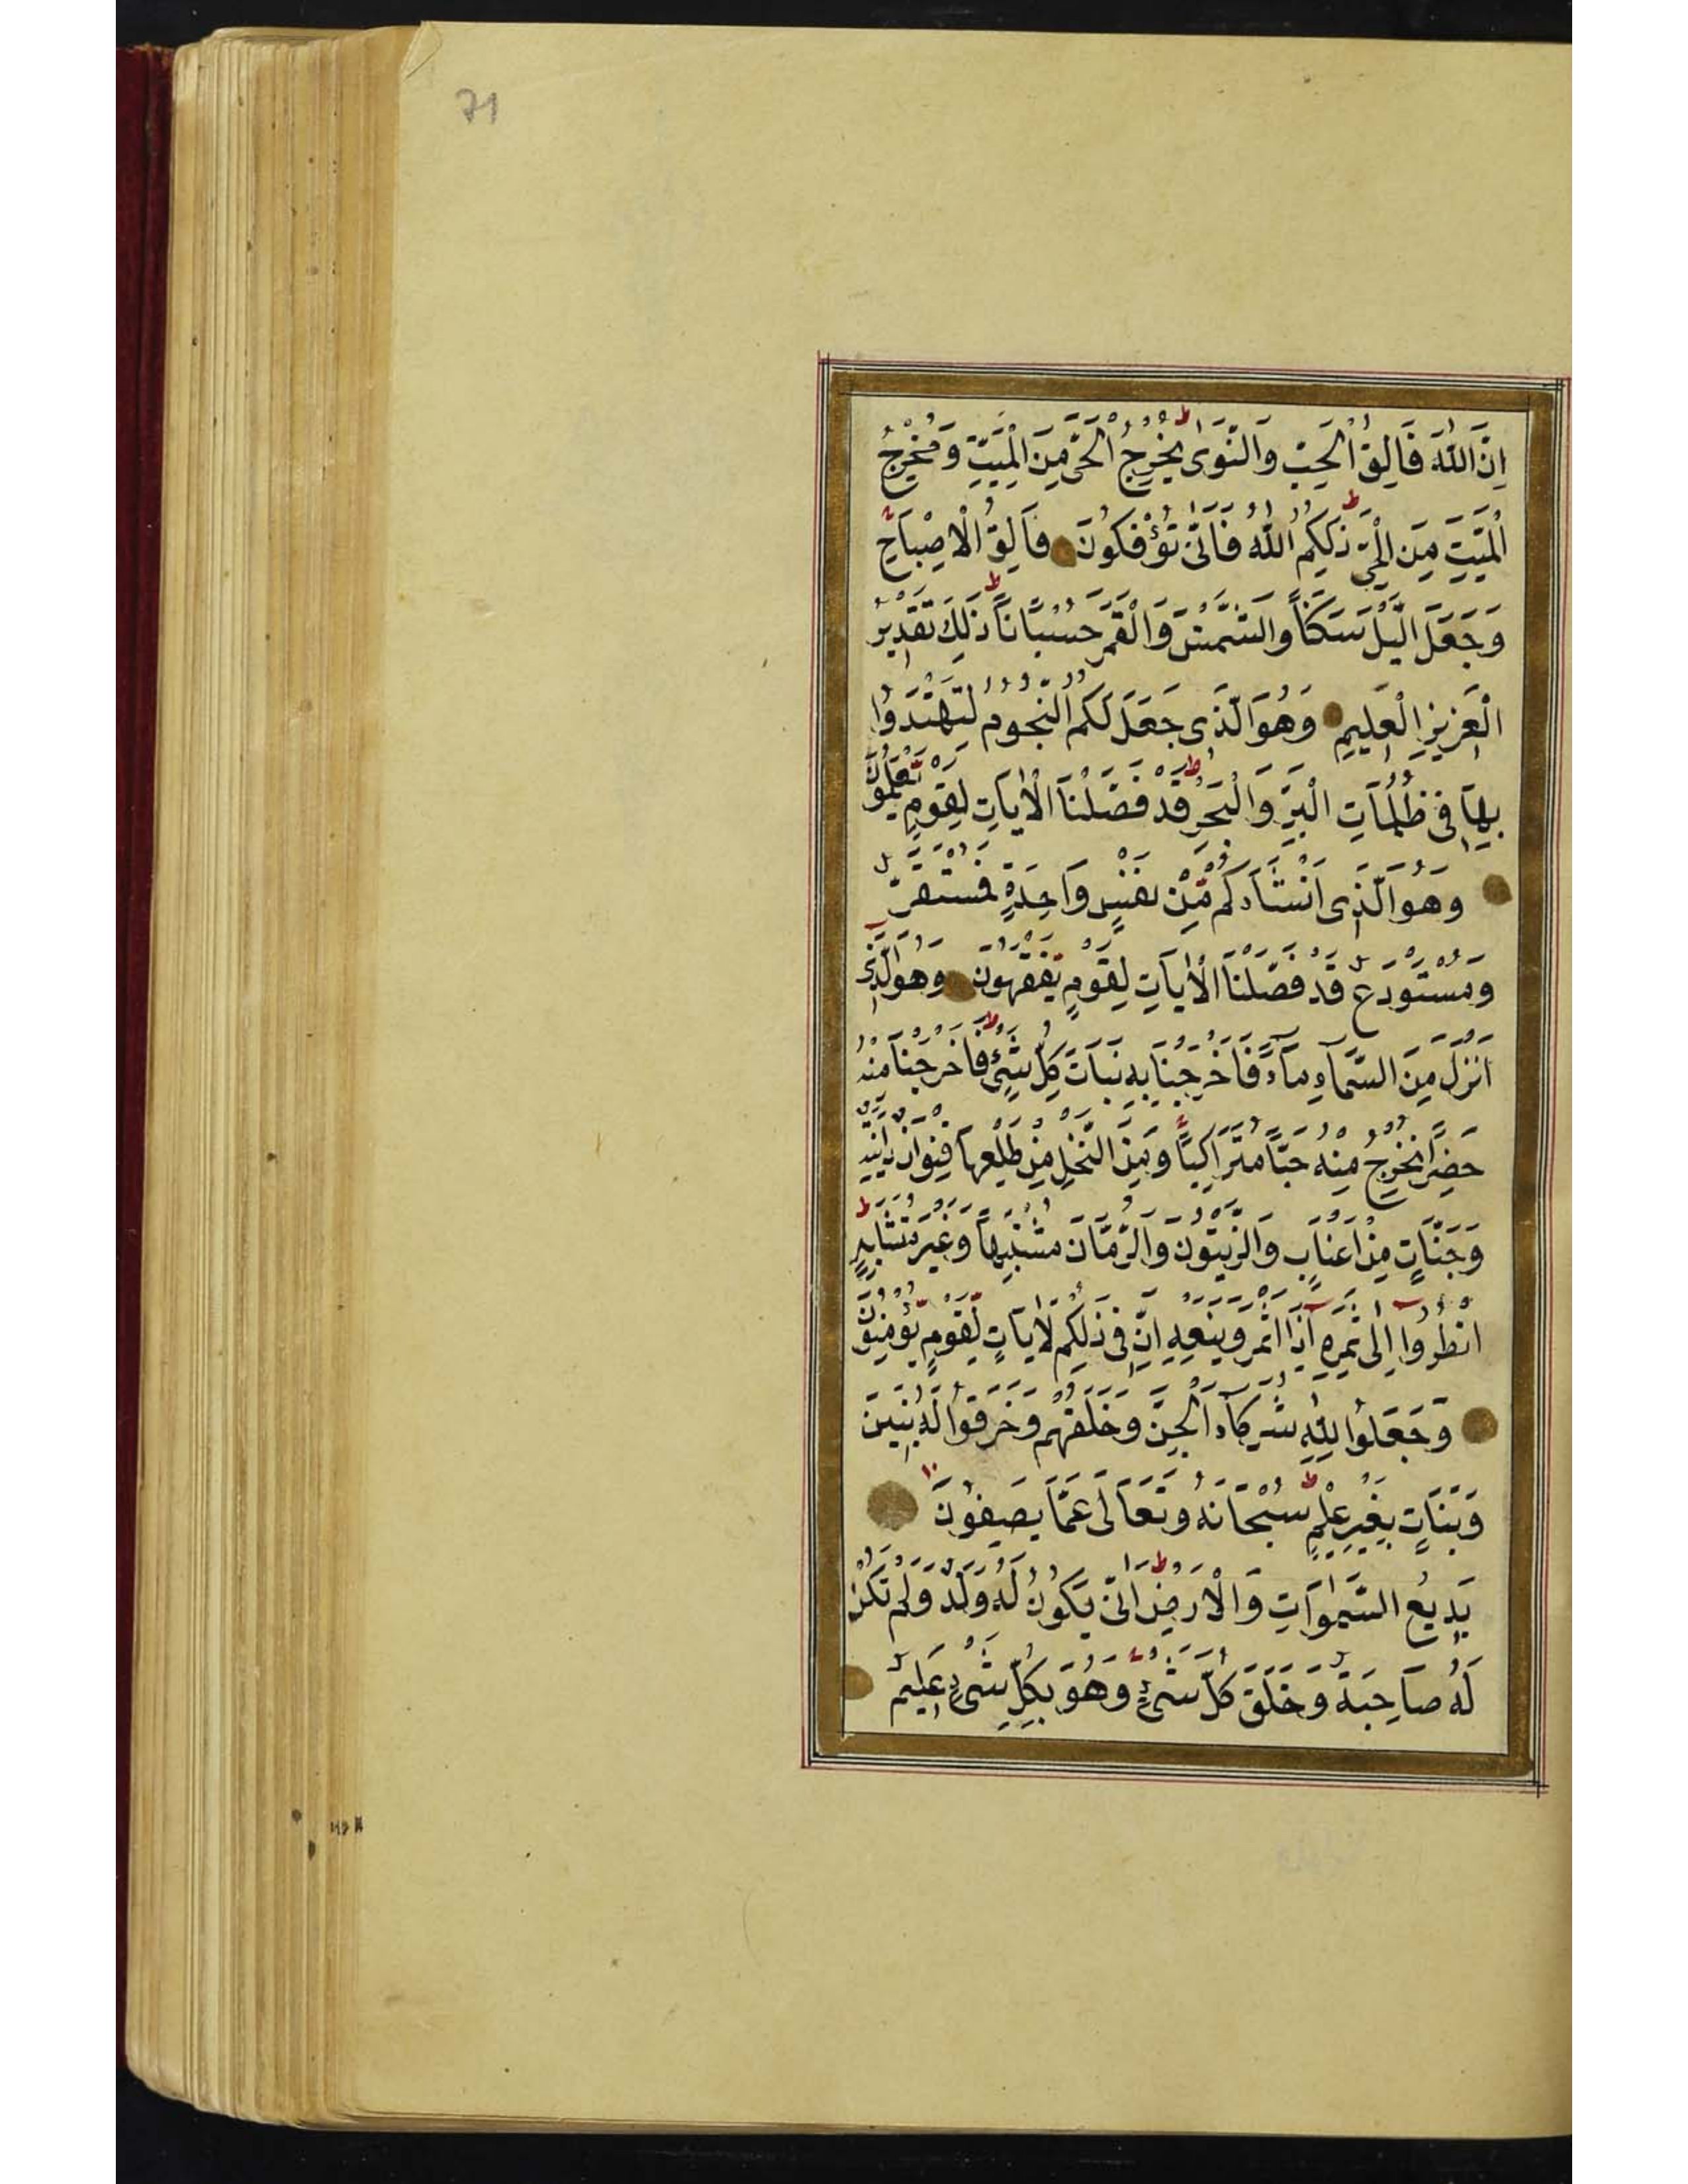 71
اِنَّ اللّٰهَ فَالِقُ الْحَبِّ وَالنَّوٰى ط يُخْرِجُ الْحَىَّ مِنَ الْمَيِّتِ وَمُخْرِجُ
الْمَيِّتِ مِنَ الْحَىِّ ط ذٰلِكُمُ اللّٰهُ فَاَنّٰى تُؤْفَكُونَ فَالِقُ الْاِصْبَاحِ
وَجَعَلَ الَّيْلَ سَكَنًا وَالشَّمْسَ وَالْقَمَرَ حُسْبَانًا ط ذٰلِكَ تَقْدِيرُ
الْعَزِيزِ الْعَلِيمِ وَهُوَ الَّذِى جَعَلَ لَكُمُ النُّجُومَ لِتَهْتَدُوا
بِهَا فِى ظُلُمَاتِ الْبَرِّ وَالْبَحْرِ ط قَدْ فَصَّلْنَا الْاٰيَاتِ لِقَوْمٍ يَعْلَمُونَ
وَهُوَ الَّذِى اَنْشَاَكُمْ مِنْ نَفْسٍ وَاحِدَةٍ فَمُسْتَقَرٌّ
وَمُسْتَوْدَعٌ قَدْ فَصَّلْنَا الْاٰيَاتِ لِقَوْمٍ يَفْقَهُونَ وَهُوَ الَّذِى
اَنْزَلَ مِنَ السَّمَآءِ مَآءً فَاَخْرَجْنَا بِهِ نَبَاتَ كُلِّ شَىْءٍ فَاَخْرَجْنَا مِنْهُ
خَضِرًا نُخْرِجُ مِنْهُ حَبًّا مُتَرَاكِبًا وَمِنَ النَّخْلِ مِنْ طَلْعِهَا قِنْوَانٌ دَانِيَةٌ
وَجَنَّاتٍ مِنْ اَعْنَابٍ وَالزَّيْتُونَ وَالرُّمَّانَ مُشْتَبِهًا وَغَيْرَ مُتَشَابِهٍ ط
انْظُرُوا اِلٰى ثَمَرِهِ اِذَا اَثْمَرَ وَيَنْعِهِ اِنَّ فِى ذٰلِكُمْ لَاٰيَاتٍ لِقَوْمٍ يُؤْمِنُونَ
وَجَعَلُوا لِلّٰهِ شُرَكَآءَ الْجِنَّ وَخَلَقَهُمْ وَخَرَقُوا لَهُ بَنِينَ
وَبَنَاتٍ بِغَيْرِ عِلْمٍ ط سُبْحَانَهُ وَتَعَالٰى عَمَّا يَصِفُونَ
بَدِيعُ السَّمٰوَاتِ وَالْاَرْضِ ط اَنّٰى يَكُونُ لَهُ وَلَدٌ وَلَمْ تَكُنْ
لَهُ صَاحِبَةٌ وَخَلَقَ كُلَّ شَىْءٍ وَهُوَ بِكُلِّ شَىْءٍ عَلِيمٌ